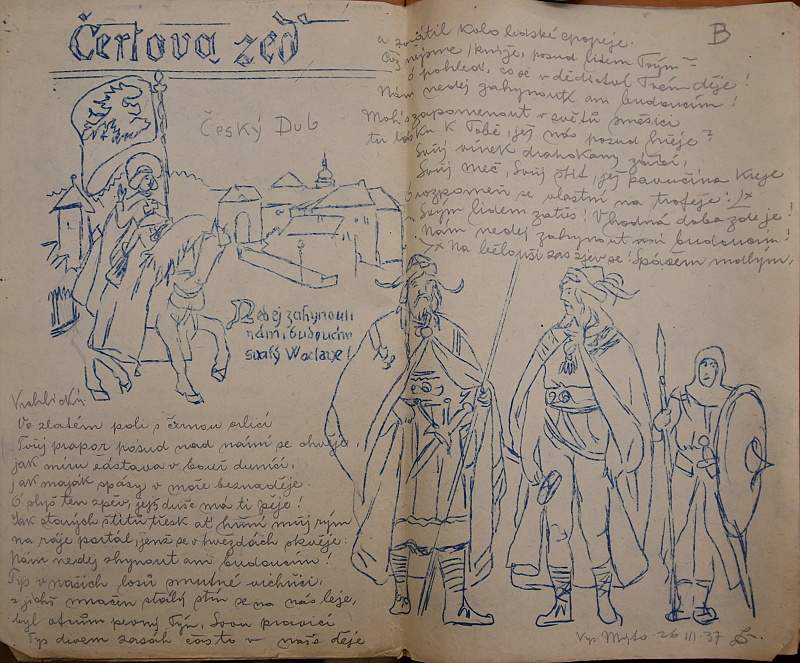 Čertova zeď
Český Dub
Nedej zahynouti
nám, i budoucím
svatý Waclawe!
Vrchlický:
Ve zlatém poli s černou orlicí
Tvůj prapor posud nad námi se chvěje,
jak míru zástava v bouř dunící,
jak maják spásy v moře beznaděje.
Ó slyš ten zpěv, jejž duše má ti pěje!
Jak starých štítů třesk ať hřmí můj rým
na ráje portál, jenž se v hvězdách skvěje:
Nám nedej zhynout ani budoucím!
Tys v našich losů smutné vichřici,
z jichž mračen stálý stín se na nás leje,
byl otrům pevný Týn, Svou pravicí
Tys divem zasáh často v naše děje
a zvrátil kolo lidské epopeje.
kníže, posud lidem Tvým
ó pohleď, co se v dědictví Tvém děje!
Nám nedej zahynout ani budoucím!
Moh's zapomenout v světů směsici
tu lásku k Tobě, jež nás posud hřeje?
Svůj vínek drahokamy zářící,
Svůj meč, Svůj štít, jej pavučina kreje
rozpomeň se vlastní na trofeje!
Svým lidem zatřes! Vhodná doba zde je!
Nám nedej zahynout ani budoucím!
Na bělouši zas zjev se spásem
B
Vys. Mýto 26 III. 37